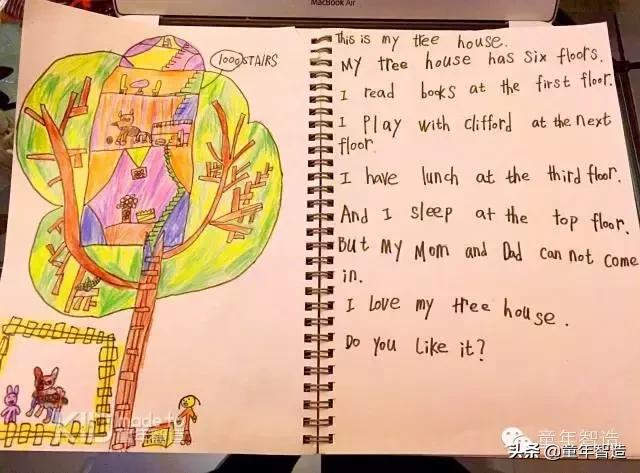 MacBook Air
1000STAIRS
This is my tree house.
My tree house has six floors.
I read books at the first floor.
I play with Clifford at the next
floor.
I have lunch at the third floor.
And I sleep at the top floor.
But my Mom and Dad can not come
in.
I love my tree house.
Do you like it?
KID made to
童年智造
童年智造
头条 @童年智造